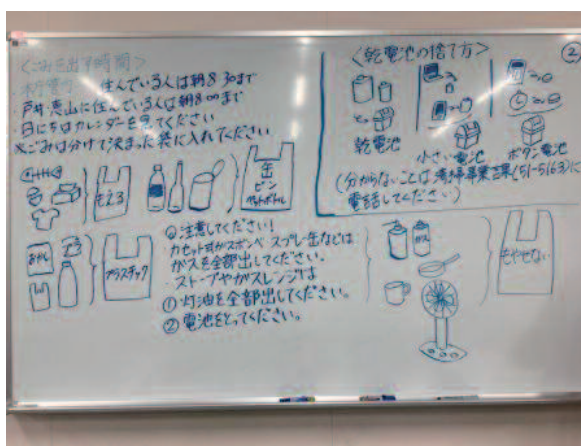 <ごみを出す時間>
住んでいる人は朝8:30まで
戸井・恵山に住んでいる人は朝8:00まで
日にちはカレンダーを見てください
※ごみは分けて決まった袋に入れてください
もえる
缶
ビン
ペットボトル
プラスチック
◎注意してください!
カセット式ガスボンベ スプレー缶などは
ガスを全部出してください。
・ストーブやガスレンジは
① 灯油を全部出してください。
② 電池をとってください。
②
<乾電池の捨て方>
乾電池
小さい電池
ボタン電池
(分からないことは清掃事業課(51-5163)に
電話してください)
ガス
もやせない